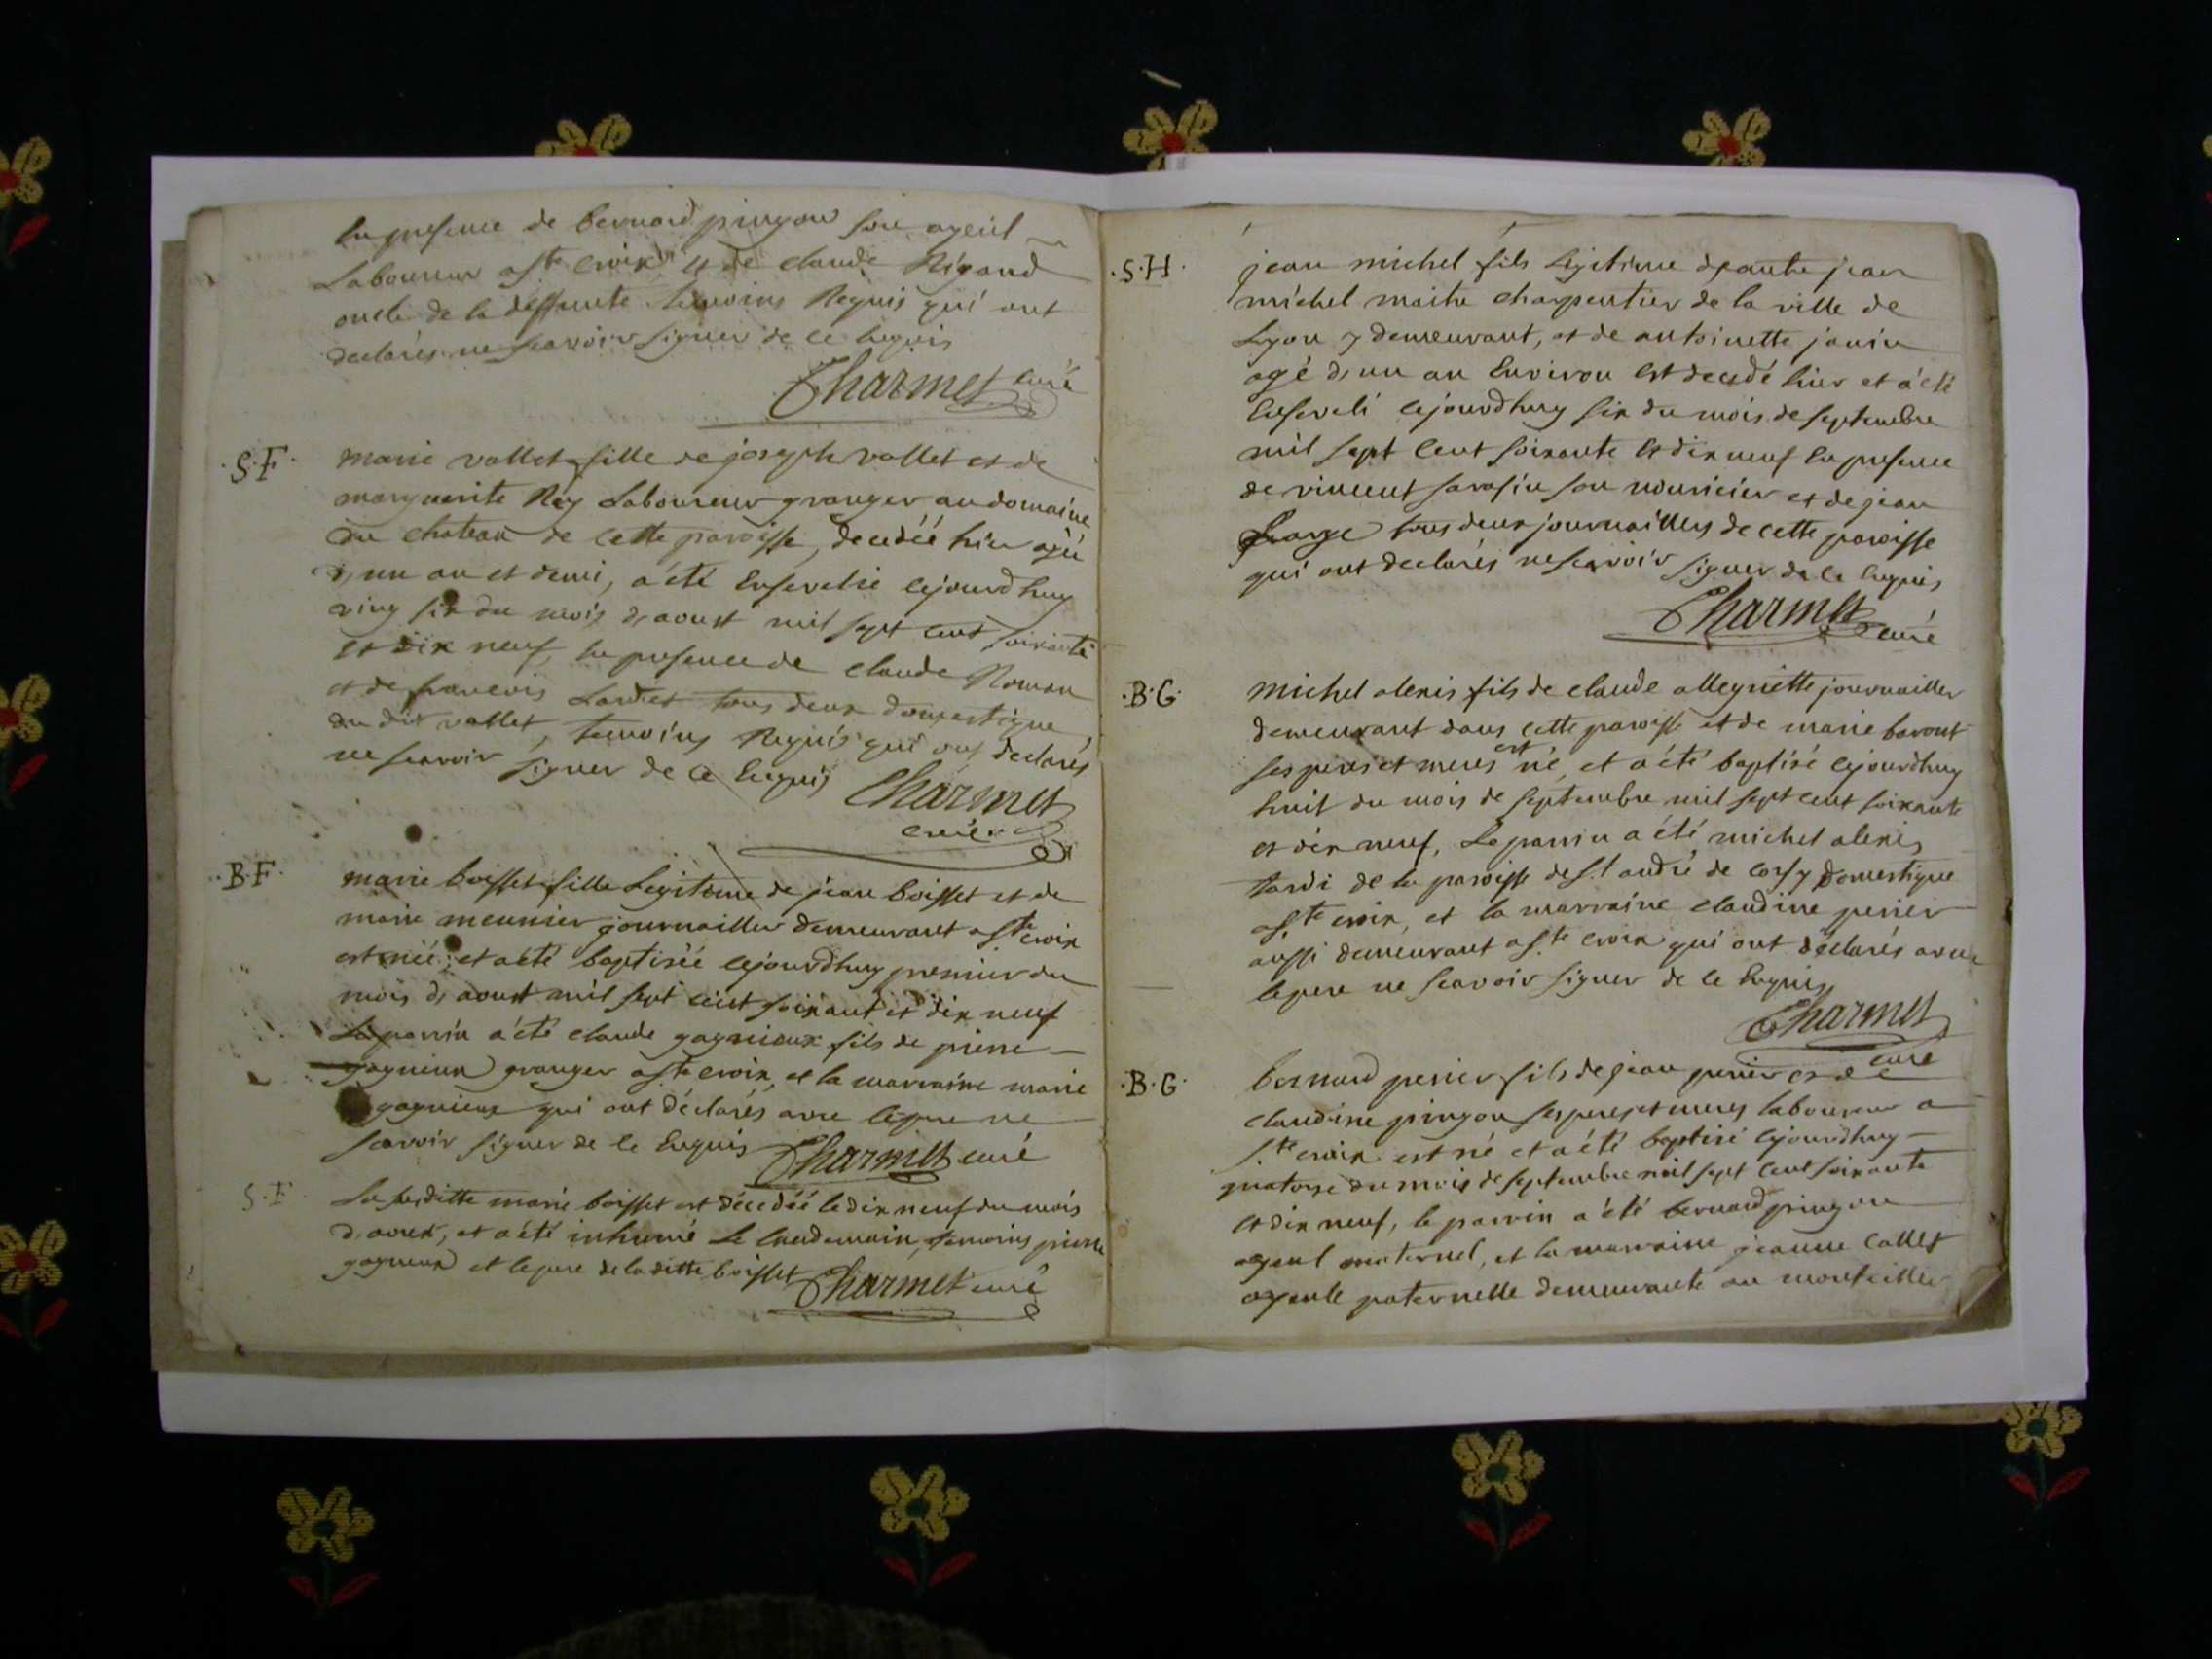 En presence de bernard pingon son ayeul
Laboureur a Ste croix et de claude Rigaud
oncle de la deffunte temoins Requis qui ont
declarés ne scavoir signer de ce Enquis
Charmet curé
.S.F. marie vallet fille de joseph vallet et de
marguerite Rey Laboureur granger au domaine
du chateau de cette paroisse, decedéé hier agéé
d,un an et demi, a été Ensevelie cejourdhuy
ving six du mois d,aoust mil sept cent soixante
et dix neuf, En presence de claude Roman
et de francois tous deux domestique
du dit vallet, temoins Requis qui ont declarés
ne scavoir signer de ce Enquis
Charmet
curé
.B.F. marie boisset fille Legitime de jean boisset et de
marie meunier journaillier demeurant a Ste croix
est néé, et a été baptiséé cejourdhuy premier du
mois d,aoust mil sept cent soixant et dix neuf
Le parrin a été claude gagnieux fils de pierre
gagnieux granger a Ste croix, et la marraine marie
gagnieux qui ont déclarés avec le pere ne
scavoir signer de ce Enquis Charmet curé
S.F. La susditte marie boisset est décedéé le dix neuf du mois
d,aoust, et a été inhumé Le Lendemain, temoins pierre
gagnieux et le pere de la ditte boisset Charmet curé
.S.H. jean michel fils Legitime d,autre jean
michel maitre charpentier de la ville de
Lyon y demeurant, et de antoinette janin
agé d,un an Environ est decedé hier et a été
Enseveli cejourdhuy six du mois de septembre
mil sept cent soixante et dix neuf En presence
de vincent sarasin son nouricier et de jean
tous deux journailliers de cette paroisse
qui ont declarés ne scavoir signer de ce Enquis
Charmet curé
.B.G. Michel alexis fils de claude allegriette journaillier
demeurant dans cette paroisse et de marie baront
ses peres et meres est né, et a été baptisé cejourdhuy
huit du mois de septembre mil sept cent soixante
et dix neuf, Le parrin a été michel alexis
tardi de la paroisse de St andré de corsy Domestique
a Ste croix, et la marraine claudine perier
aussi demeurant a Ste croix qui ont déclarés avec
le pere ne scavoir signer de ce Enquis
Charmet
curé
.B.G. bernard perier fils de jean perier et de
claudine pingon ses peres et meres laboureur a
Ste croix est né et a été baptisé cejourdhuy
quatorze du mois de septembre mil sept cent soixante
et dix neuf, le parrin a été bernard pingon
ayeul maternel, et la marraine jeanne collet
ayeule paternelle demeurante au montellier